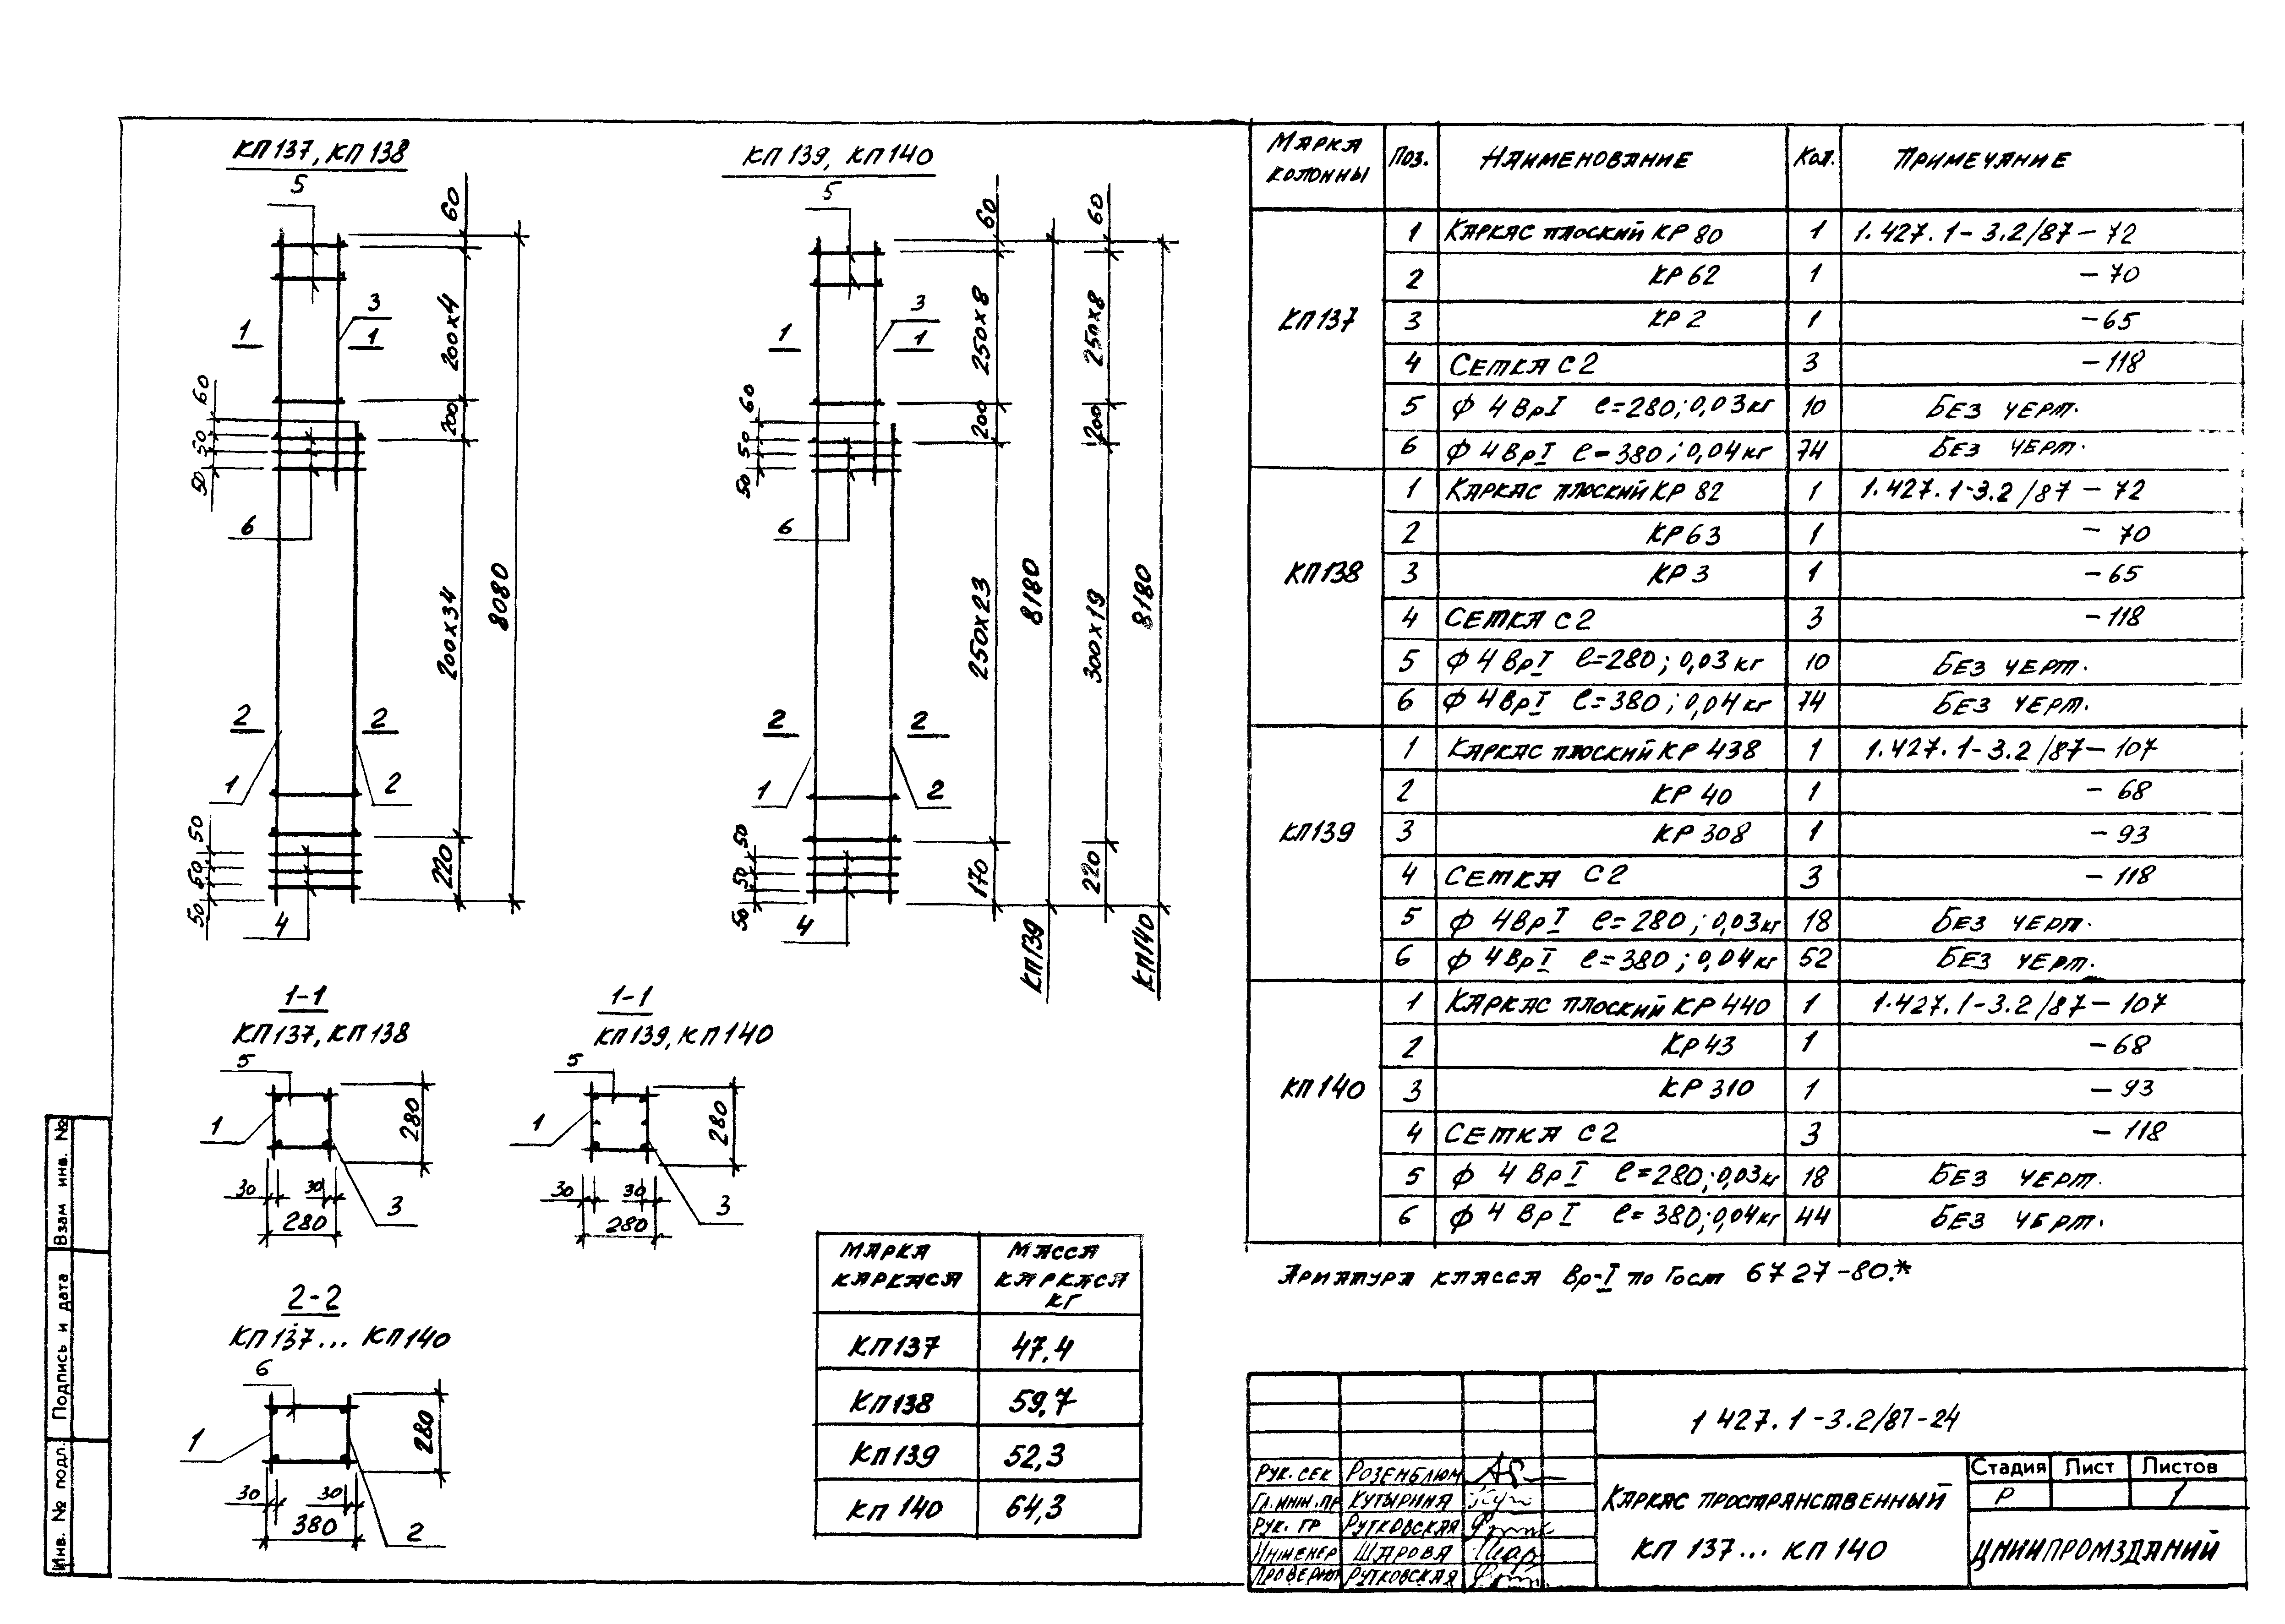 КП137, КП138
5
60
200х4
3
1
1
60
50
50
50
200
6
200х34
8080
2
2
1
2
50
50
50
50
220
4
КП139, КП140
5
60
60
250х8
250х8
3
1
1
60
50
50
50
200
200
6
250х23
8180
300х19
8180
2
2
1
2
50
50
50
170
220
4
КП139
КП140
1-1
КП137, КП138
5
1
280
30
30
280
3
1-1
КП139, КП140
5
1
280
30
30
280
3
2-2
КП137... КП140
6
1
280
30
30
380
2
МАРКА КАРКАСА МАССА КАРКАСА КГ
КП137 47.4
КП138 59,7
КП139 52,3
КП 140 64,3
МАРКА КОЛОННЫ Поз. НАИМЕНОВАНИЕ Кол. ПРИМЕЧАНИЕ
КП137
1 КАРКАС ПЛОСКИЙ КР 80 1 1.427.1-3.2/87-72
2 КР 62 1 -70
3 КР 2 1 -65
4 СЕТКА С2 3 -118
5 Ф 4 ВрI ℓ=280; 0,03кг 10 БЕЗ ЧЕРТ.
6 Ф 4ВрI ℓ=380; 0,04кг 74 БЕЗ ЧЕРТ.
КП138
1 КАРКАС ПЛОСКИЙ КР 82 1 1.427.1-3.2/87-72
2 КР63 1 -70
3 КР3 1 -65
4 СЕТКА С2 3 -118
5 Ф 4ВрI ℓ=280; 0,03кг 10 БЕЗ ЧЕРТ.
6 Ф 4ВрI ℓ=380; 0,04кг 74 БЕЗ ЧЕРТ.
КП139
1 КАРКАС ПЛОСКИЙ КР 438 1 1.427.1-3.2/87-107
2 КР 40 1 -68
3 КР 308 1 -93
4 СЕТКА С2 3 -118
5 Ф 4ВрI ℓ=280; 0,03кг 18 БЕЗ ЧЕРТ.
6 Ф 4ВрI ℓ=380; 0,04кг 52 БЕЗ ЧЕРТ.
КП140
1 КАРКАС ПЛОСКИЙ КР 440 1 1.427.1-3.2/87-107
2 КР43 1 -68
3 КР 310 1 -93
4 СЕТКА С2 3 -118
5 Ф 4 ВрI ℓ=280; 0,03кг 18 БЕЗ ЧЕРТ.
6 Ф 4 ВрI ℓ=380; 0,04кг 44 БЕЗ ЧЕРТ.
АРМАТУРА КЛАССА Вр-I по Гост 6727-80.*
1 427.1-3.2/87-24
РУК. СЕК РОЗЕНБЛЮМ
ГЛ. ИНЖ. ПР КУТЫРИНА
РУК. ГР РУТКОВСКАЯ
ИНЖЕНЕР ШАРОВА
ПРОВЕРИЛ РУТКОВСКАЯ
КАРКАС ПРОСТРАНСТВЕННЫЙ
КП 137... КП 140
Стадия Лист Листов
Р 1
ЦНИИПРОМЗДАНИЙ
Взам инв. №
Подпись и дата
Инв. № подл.